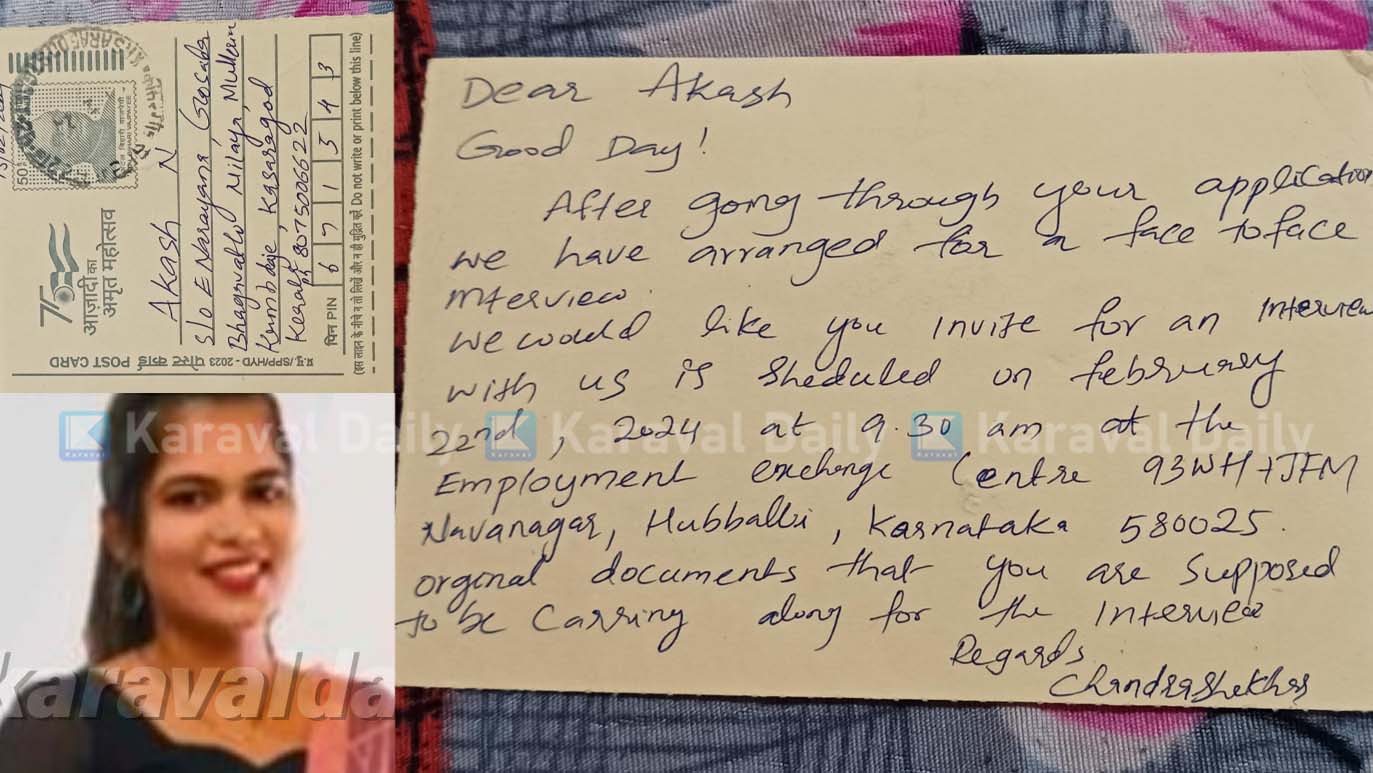 50
ATAL BIHARI VAJPAYEE
75
आज़ादी का
अमृत महोत्सव
Akash N
S/o E Narayana, Gosada
Bhagavathi Nilaya,
Kumbdaje, Kasaragod
Kerala
8075006622
पिन PIN 6 7 1 5 4 3
(इस लाइन के नीचे न तो लिखें और न ही मुद्रित करें Do not write or print below this line)
प्र.मु./SPP/HYD - 2023 पोस्ट कार्ड POST CARD
Dear Akash
Good Day!
After going through your application
we have arranged for a face to face
interview.
we would like you invite for an interview
with us is sheduled on february
22nd, 2024 at 9.30 am at the
Employment exchange Centre 93WH+JFM
Navanagar, Hubballi, Karnataka 580025.
orginal documents that you are supposed
to be carring along for the interview
Regards
Chandrashekhar
Karaval Daily
Karaval Daily
Karaval Daily
karavalda